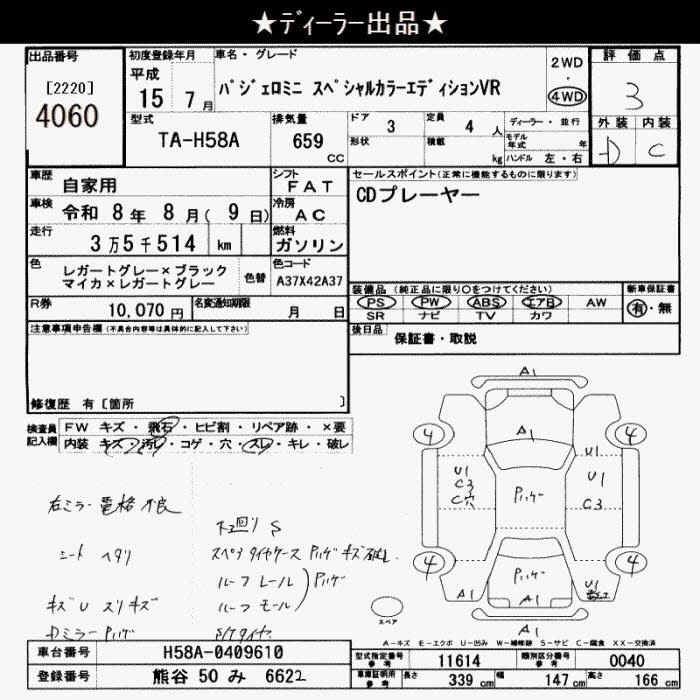 ★ディーラー出品★
出品番号 初度登録年月 車名・グレード 評価点
[2220] 平成 15 7月 パジェロミニ スペシャルカラーエディションVR 2WD・4WD 3
4060
型式 排気量 ドア 3 定員 4人 ディーラー・並行 外装 内装
TA-H58A 659cc 形状 積載 kg モデル年式 年 ハンドル 左・右 D C
車歴 自家用 シフト FAT セールスポイント(正常に機能するものに限ります)
車検 令和 8年 8月(9日) 冷房 AC CDプレーヤー
走行 3万5千514 km 燃料 ガソリン
色 レガートグレー×ブラック 色替 色コード
マイカ×レガートグレー A37X42A37
装備品 (純正品に限り○をつけてください) 新車保証書
R券 10,070円 名変通知期限 月 日 PS PW ABS エアB AW 有・無
SR ナビ TV カワ
注意事項申告欄(不具合内容等は具体的に記入して下さい) 後日品 保証書・取説
修復歴 有 [箇所 ]
検査員記入欄 FW キズ・飛石・ヒビ割・リペア跡・×要
内装 キズ・汚レ・コゲ・穴・スレ・キレ・破レ
A1
A1
4 4
U1 U1
C3 C3
C穴
パハゲ
4 4
パハゲ
A1 A1 U1
A1
スペア
右ミラー電格不良
下回り S
シート ヘタリ スペアタイヤケース Pハゲ キズ 破レ
ルーフレール Pハゲ
キズU スリキズ ルーフモール
Dミラー Pハゲ S/Tタイヤ
A-キズ E-エクボ U-凹み W-補修跡 S-サビ C-腐食 XX-交換済
車台番号 H58A-0409610 型式指定番号 参考 11614 類別区分番号 参考 0040
登録番号 熊谷 50 み 6622 車庫証明用 参考 長さ 339cm 幅 147cm 高さ 166cm